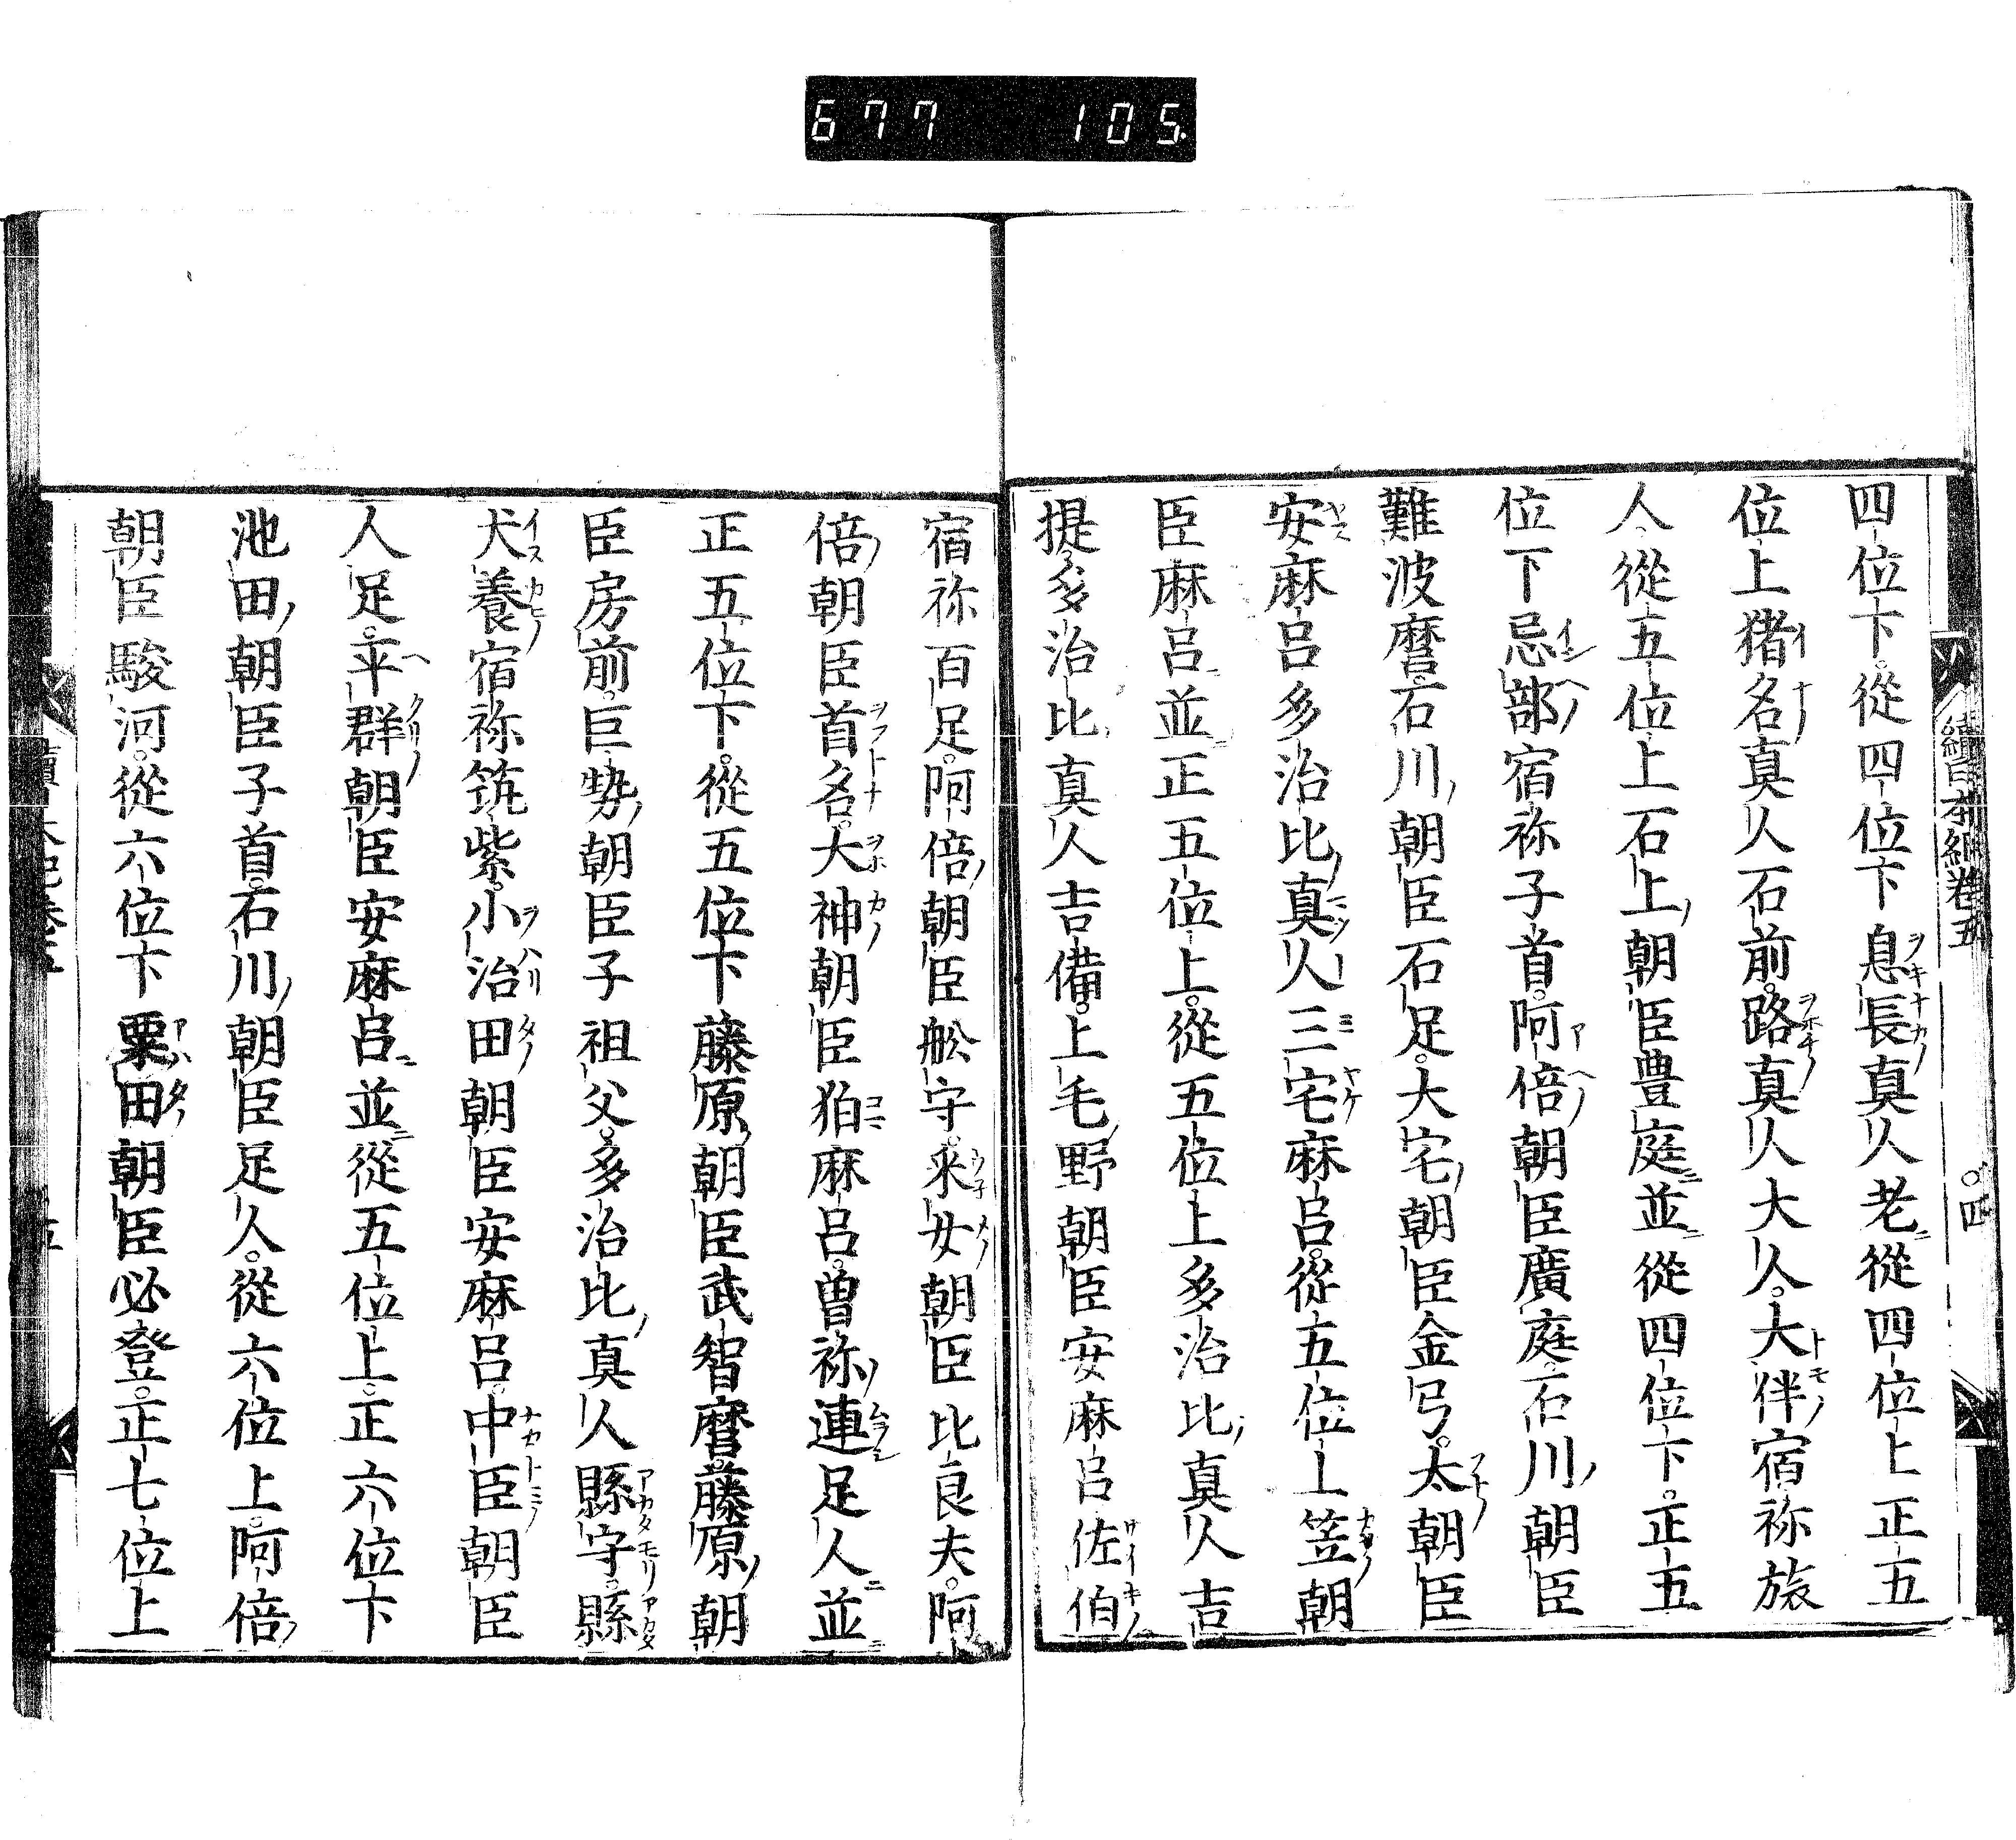 677 105
續日本紀卷五 ○四
四位下。從四位下息長真人老從四位上正五
位上猪名真人石前。路真人大人。大伴宿祢旅
人。從五位上石上朝臣豊庭並從四位下。正五
位下忌部宿祢子首。阿倍朝臣廣庭。石川朝臣
難波麿。石川朝臣石足。大宅朝臣金弓。太朝臣
安麻呂多治比真人三宅麻呂。從五位上笠朝
臣麻呂並正五位上。從五位上多治比真人吉
提多治比真人吉備。上毛野朝臣安麻呂佐伯
宿祢百足。阿倍朝臣舩守。釆女朝臣比良夫。阿
倍朝臣首名。大神朝臣狛麻呂。曽祢連足人並
正五位下。從五位下藤原朝臣武智麿。藤原朝
臣房前。巨勢朝臣子祖父。多治比真人縣守。縣
犬養宿祢筑紫。小治田朝臣安麻呂。中臣朝臣
人足。平群朝臣安麻呂並從五位上。正六位下
池田朝臣子首。石川朝臣足人。從六位上。阿倍
朝臣駿河。從六位下粟田朝臣必登。正七位上